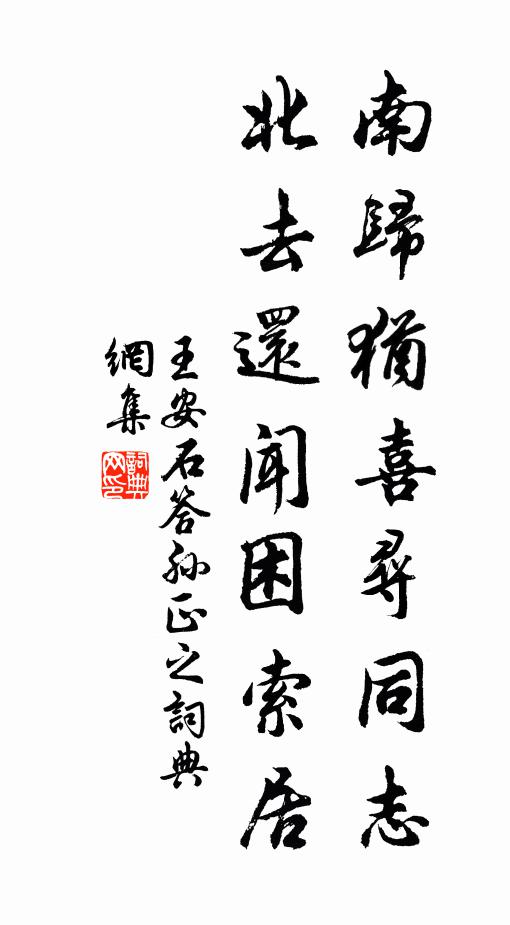 南歸猶喜尋同志
北去還聞困索居
王安石答孫正之詞典
網集
詞典网印